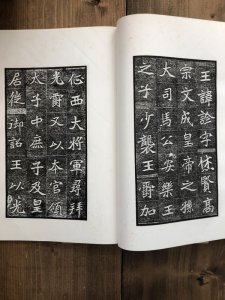 王諱詮字休賢高
宗文成皇帝之孫
大司馬公安樂王
之子少襲王爵加
征西大將軍尋拜
光爵又以本官領
太子中庶子及皇
居徙御詔王以光